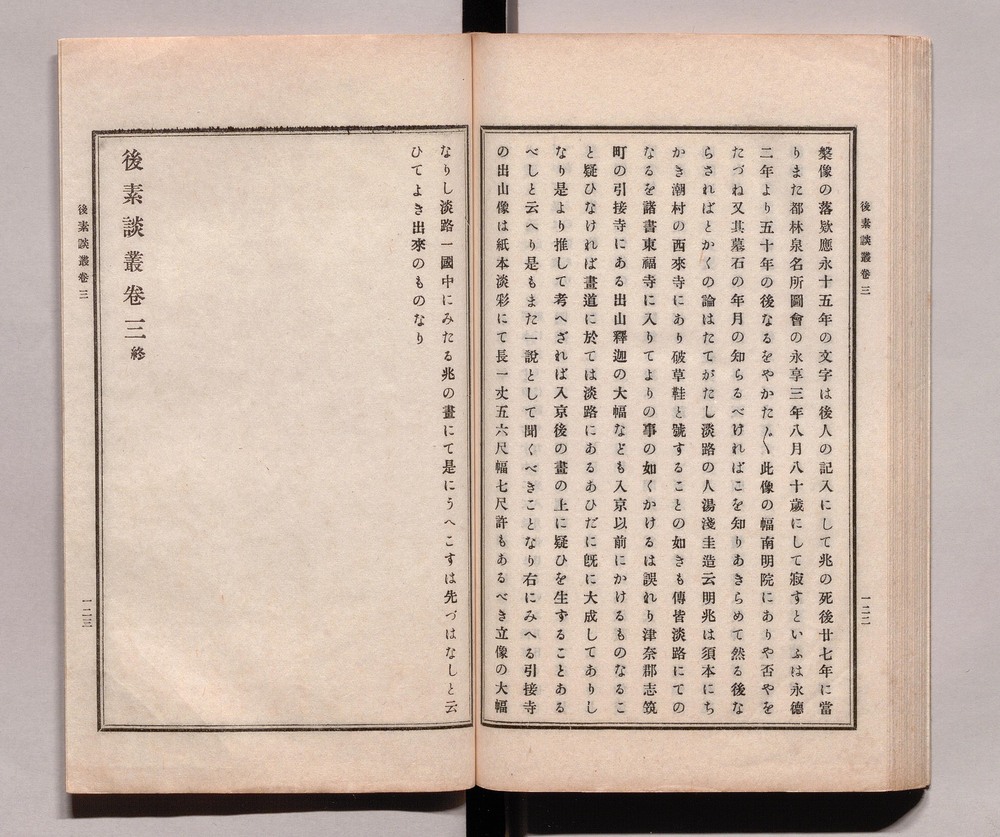 後素談叢卷三
槃像の落欵應永十五年の文字は後人の記入にして兆の死後廿七年に當
りまた都林泉名所圖會の永享三年八月八十歲にして寂すといふは永德
二年より五十年の後なるをやかた〲此像の幅南明院にありや否やを
たづね又其墓石の年月の知らるべければこを知りあきらめて然る後な
らざればとかくの論はたてがたし淡路の人湯淺圭造云明兆は須本にち
かき潮村の西來寺にあり破草鞋と號することの如きも傳皆淡路にての
なるを諸書東福寺に入りてよりの事の如くかけるは誤れり津奈郡志筑
町の引接寺にある出山釋迦の大幅なども入京以前にかけるものなるこ
と疑ひなければ畫道に於ては淡路にあるあひだに旣に大成してありし
なり是より推して考へざれば入京後の畫の上に疑ひを生ずることある
べしと云へり是もまた一說として聞くべきことなり右にみへる引接寺
の出山像は紙本淡彩にて長一丈五六尺幅七尺許もあるべき立像の大幅
一二二
なりし淡路一國中にみたる兆の畫にて是にうへこすは先づはなしと云
ひてよき出來のものなり
後素談叢卷三終
後素談叢卷三
一二三